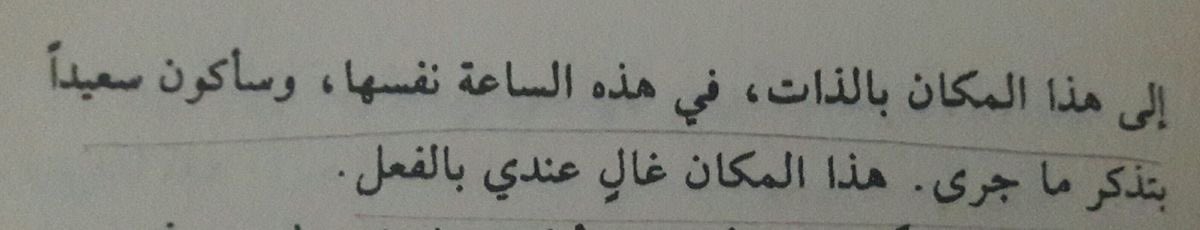 إلى هذا المكان بالذات، في هذه الساعة نفسها، وسأكون سعيداً
بتذكر ما جرى. هذا المكان غالٍ عندي بالفعل.